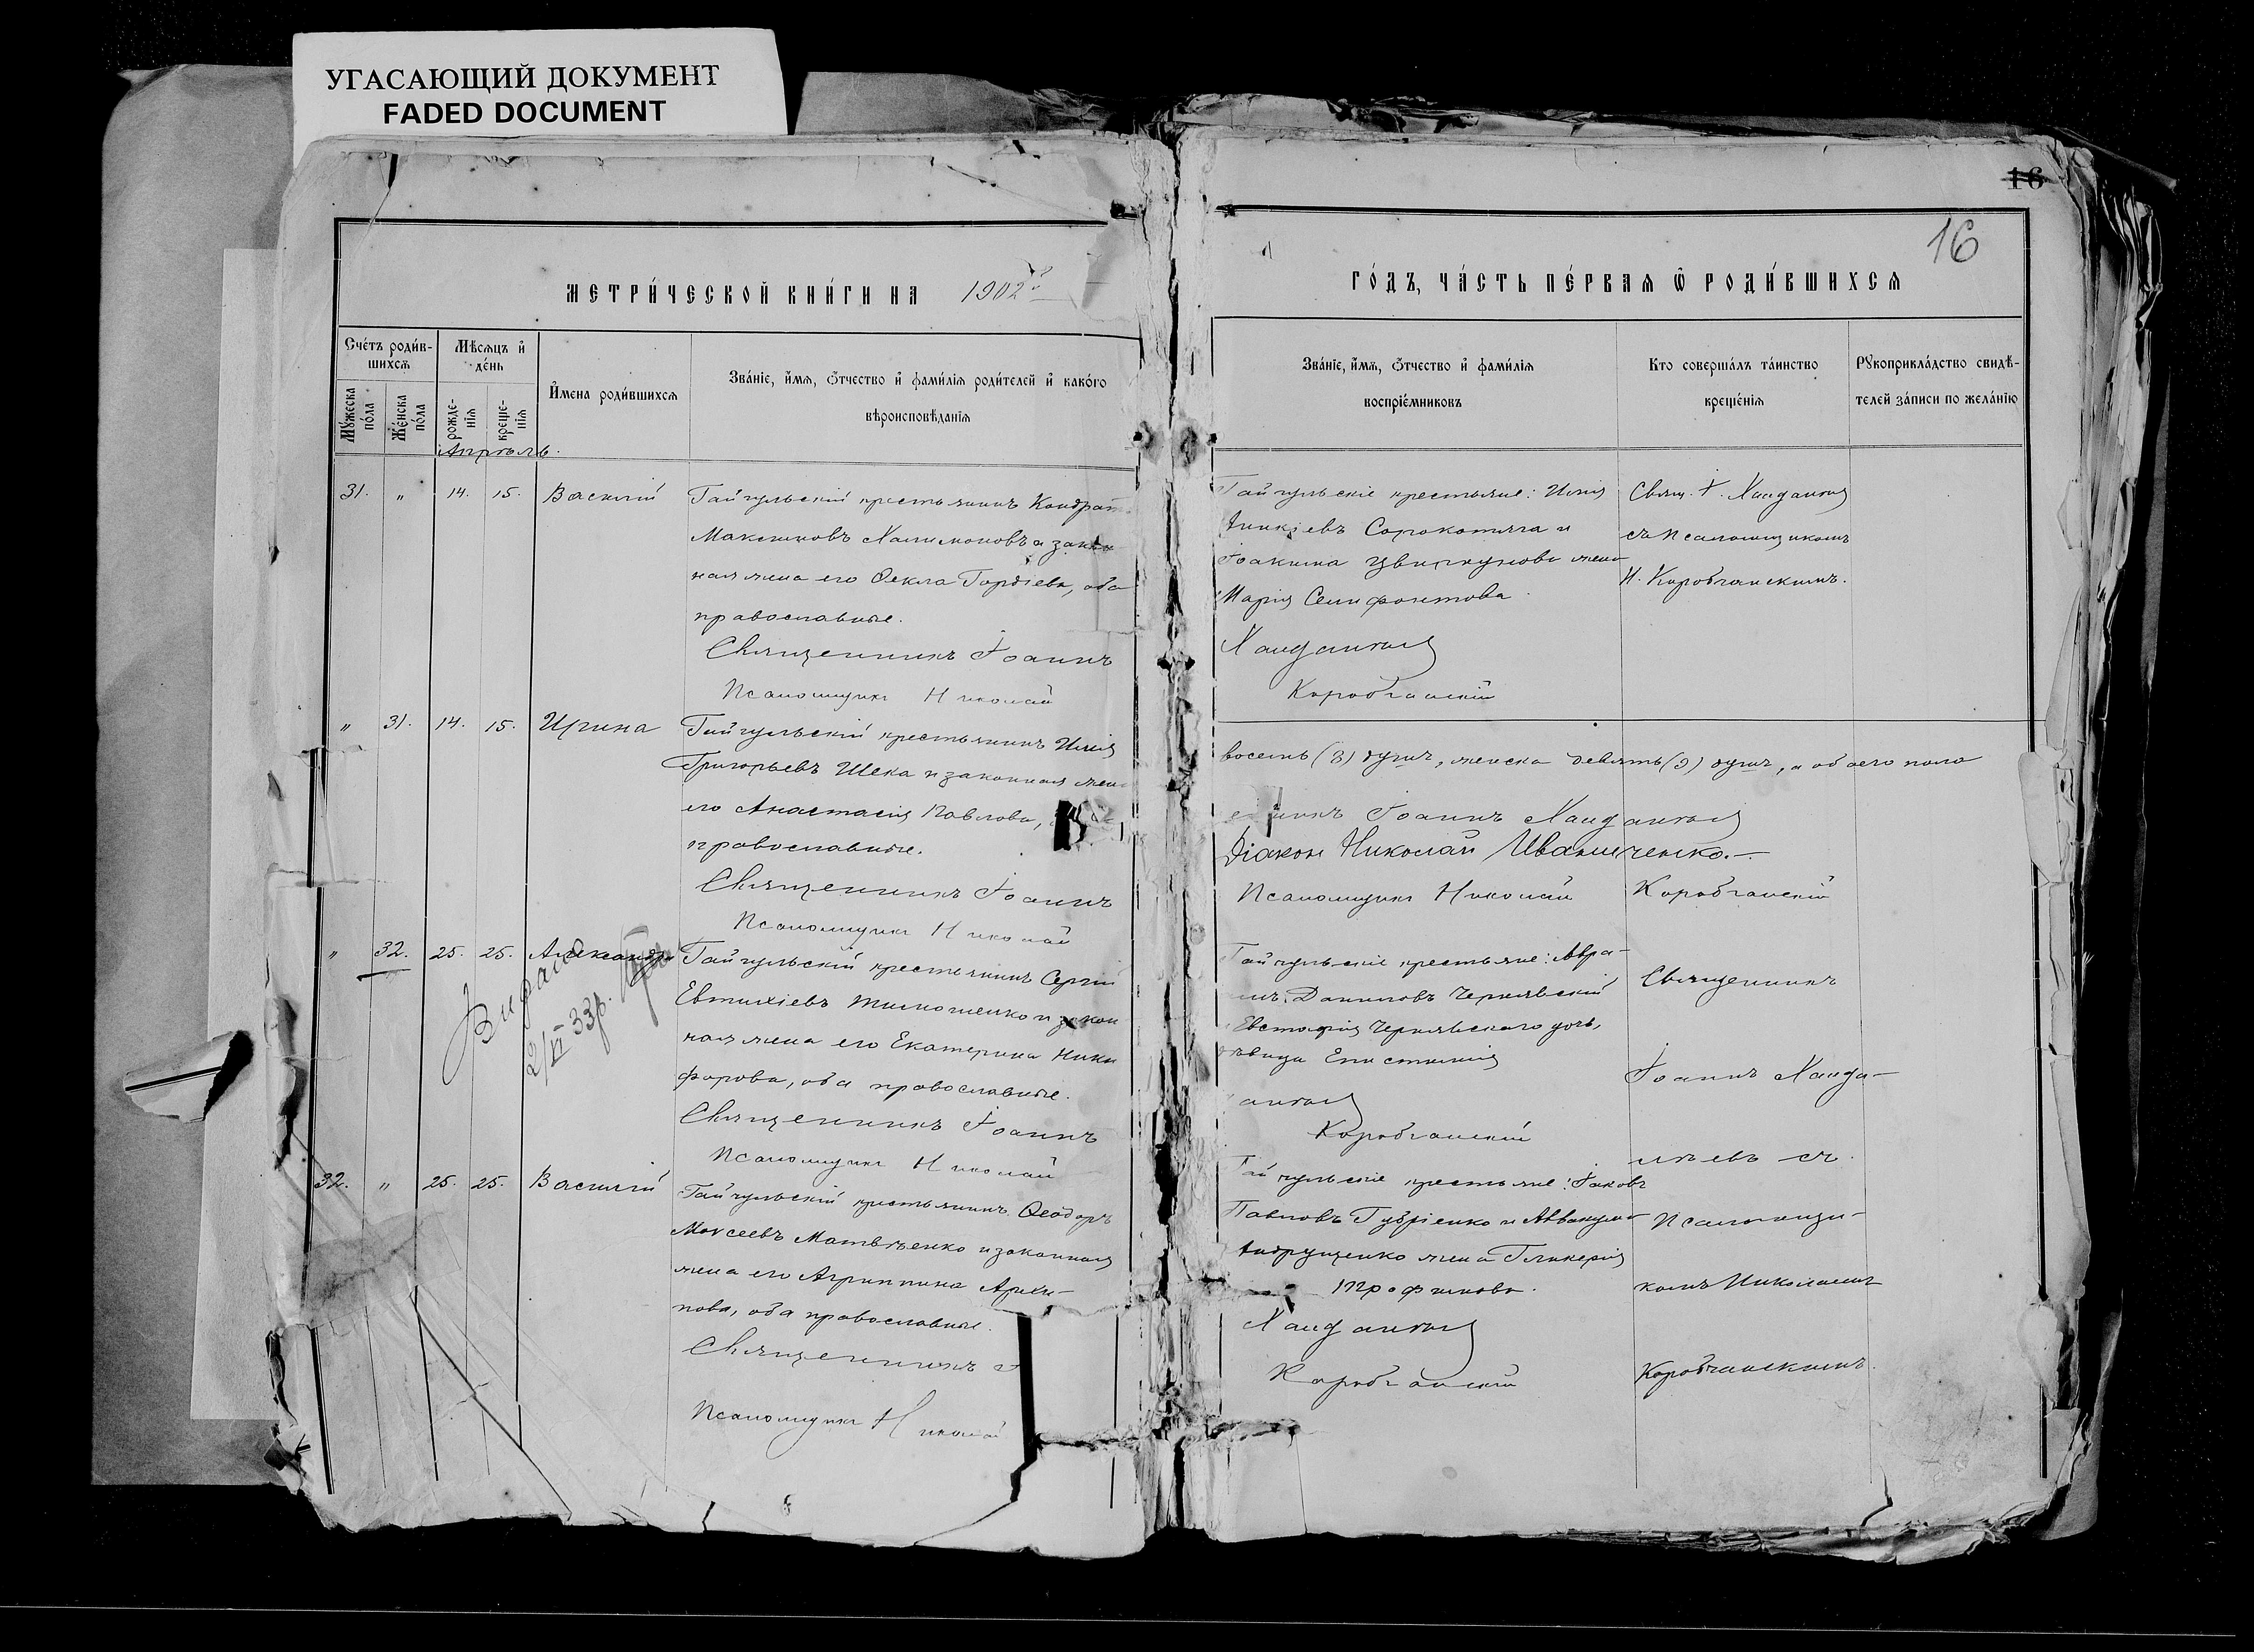 УГАСАЮЩИЙ ДОКУМЕНТ
FADED DOCUMENT
16
16
МЕТРИ́ЧЕСКОЙ КНИ́ГИ НА 1902й
ГО́ДЪ, ЧА́СТЬ ПЕ́РВАѦ Ѡ҆ РОДИ́ВШИХСѦ
Сче́тъ роди́в-
шихсѧ
Мѣ́сѧцъ и҆
де́нь
Мꙋ́жеска
по́ла
Же́нска
по́ла
рожде-
нїѧ
креще-
нїѧ
И҆мена роди́вшихсѧ
Зва́нїе, и҆́мѧ, ѻ҆́тчество и҆ фами́лїѧ роди́телей и҆ како́го
вѣроисповѣ́данїѧ
Зва́нїе, и҆́мѧ, ѻ҆́тчество и҆ фами́лїѧ
воспрїе́мниковъ
Кто соверша́лъ та́инство
креще́нїѧ
Рꙋкоприкла́дство свидѣ́-
телей за́писи по жела́нїю
Апрѣль.
31. " 14. 15. Василій
Гайчульскій крестьянинъ Кондрат
Максимовъ Халимоновъ и закон
ная жена его Ѳекла Гордіева, оба
православные.
Священникъ Іоаннъ
Псаломщикъ Николай
Гайчульскіе крестьяне: Илія
Сорокотяга и
Іоакима Цвиркунова жена
Марія Ксенофонтова
Хандалѣевъ
Коробчанскій
Свящ. І. Хандалѣевъ
съ псаломщикомъ
Н. Коробчанскимъ.
" 31. 14. 15. Ирина
Гайчульскій крестьянинъ Илія
Григорьевъ Шека и законная жена
его Анастасія Павлова,
православные.
Священникъ Іоаннъ
Псаломщикъ Николай
восемь (8) душъ, женска девять (9) душъ, а обоего пола
Іоаннъ Хандалѣевъ
Діаконъ Николай Иванченко.
Псаломщикъ Николай Коробчанскій
" 32. 25. 25. Александра
22/VI 33р.
Гайчульскій крестьянинъ Сергій
Евтихіевъ Тимошенко и закон
ная жена его Екатерина Ники
форова, оба православные.
Священникъ Іоаннъ
Псаломщикъ Николай
Гайчульскіе крестьяне: Авра-
Даниловъ Чернявскій
Евстафія Чернявскаго дочь,
дѣвица Епистимія
Коробчанскій
Священникъ
Іоаннъ Ханда-
лѣевъ съ
псаломщи-
комъ Николаемъ
Коробчанскимъ.
32. " 25. 25. Василій
Гайчульскій крестьянинъ Ѳеодоръ
Моисеевъ Матвѣенко и законная
жена его Агриппина Архи-
пова, оба православные.
Священникъ
Псаломщикъ Николай
Гайчульскіе крестьяне: Іаковъ
Павловъ Губріенко и Аввакума
Андрущенко жена Гликерія
Трофимова.
Хандалѣевъ
Коробчанскій